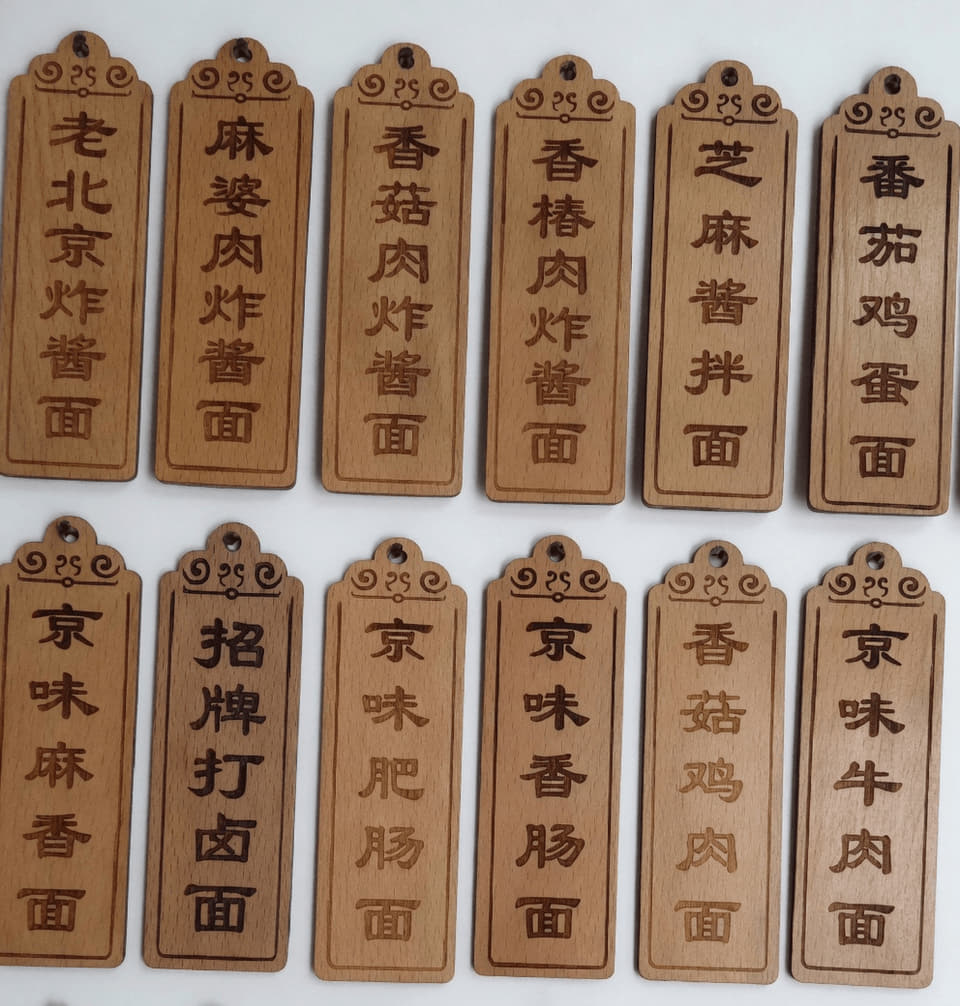 老北京炸酱面
麻婆肉炸酱面
香菇肉炸酱面
香椿肉炸酱面
芝麻酱拌面
番茄鸡蛋面
京味麻香面
招牌打卤面
京味肥肠面
京味香肠面
香菇鸡肉面
京味牛肉面